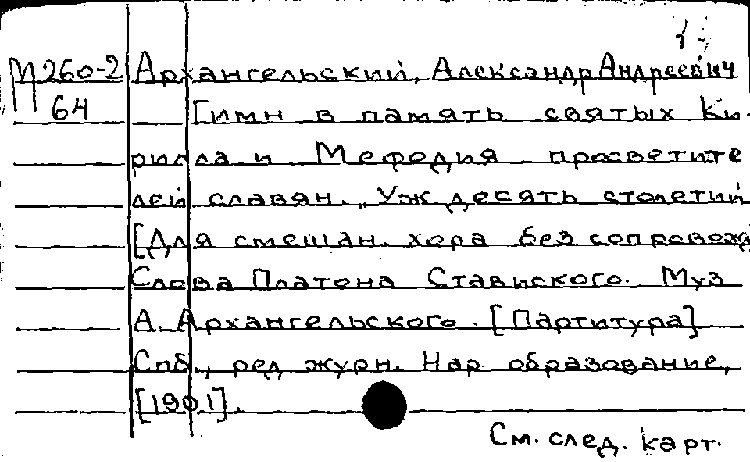 М260-2 Архангельский, Александр Андреевич
64 Гимн в память святых Ки-
рилла и Мефодия просветите
лей славян. „Уж десять столетий
[Для смешан. хора без сопровожд
Слова Платона Ставиского. Муз
А. Архангельского. [Партитура]
Спб., ред журн. Нар образование,
[1901].
См. след. карт.